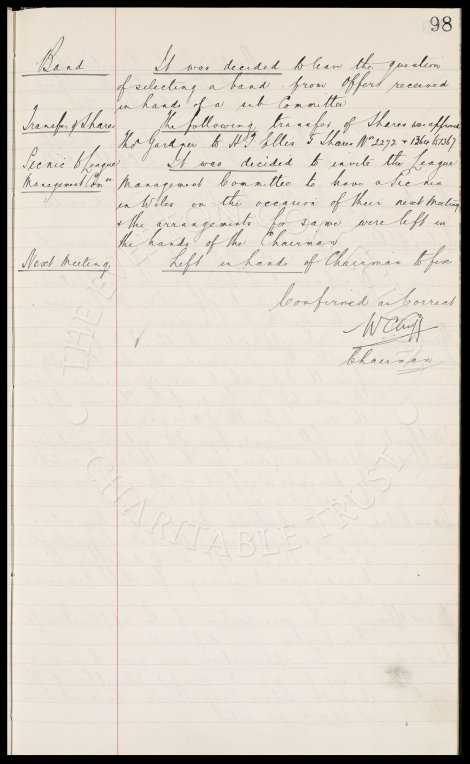 98
Band It was decided to leave the question
of selecting a band from offers received
in hands of a sub Committee
Transfer of Shares The following transfer of Shares was approved
Thos Gardner to H J Ellis 5 Shares Nos 2272 & 1364 to 1367
Picnic to League It was decided to invite the League
Management Com Management Committee to have a Picnic
in Wales on the occasion of their next Meeting
& the arrangements for same were left in
the hands of the Chairman
Next Meeting Left in hands of Chairman to fix
Confirmed as Correct
W C Cuff
Chairman
CHARITABLE TRUST